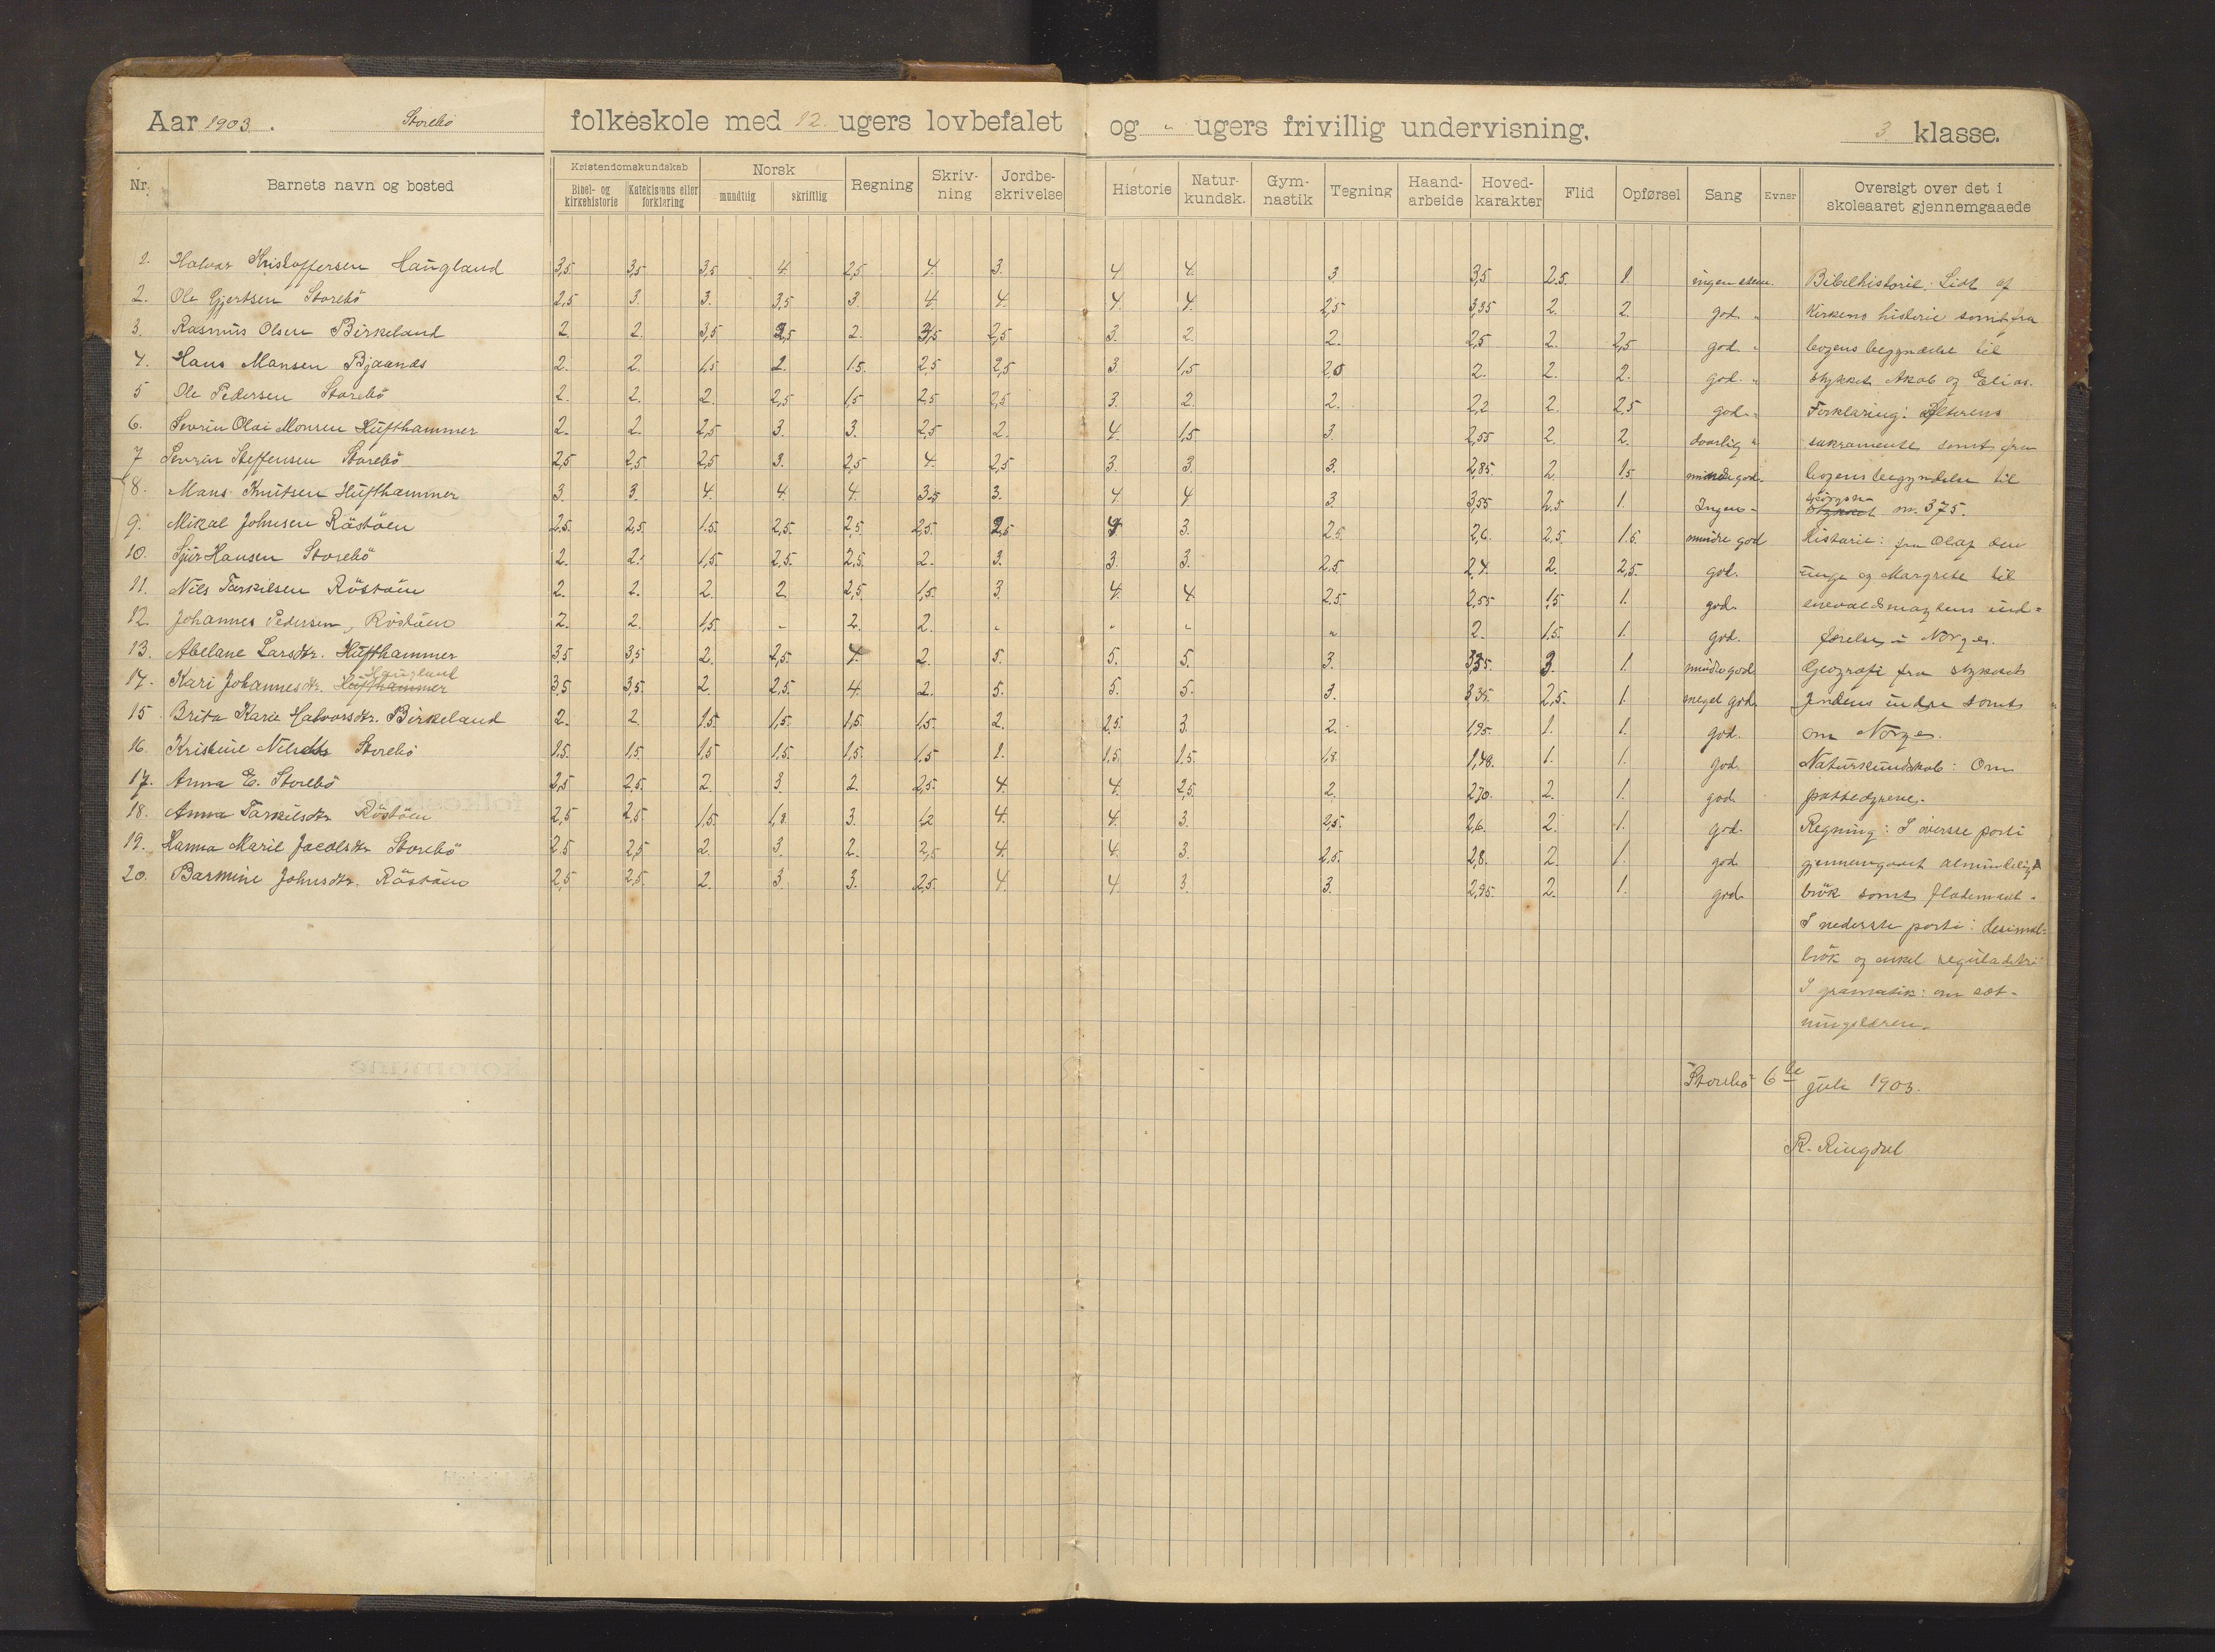 Aar 1903. Storebö folkeskole med 12 ugers lovbefalet og " ugers frivillig undervisning. 3 klasse.
Nr. Barnets navn og bosted Kristendomskundskab Bibel- og kirkehistorie Katekismus eller forklaring Norsk mundtlig skriftlig Regning Skriv-ning Jordbe-skrivelse Historie Natur-kundsk. Gym-nastik Tegning Haand-arbeide Hoved-karakter Flid Opførsel Sang Evner Oversigt over det i skoleaaret gjennemgaaede
1. Halvar Kristoffersen Haugland 3,5 3,5 3,5 4 2,5 4. 3. 4 4. 3 3,5 2.5. 1 ingen Bibelhistorie: Lidt af
2. Ole Gjertsen Storebö 2,5 3. 3. 3,5 3. 4. 4. 4. 4. 2,5 3,35 2. 2. god " Kirkens historie samt fra
3. Rasmus Olsen Birkeland 2 2. 3,5 2,5 2. 3,5 2,5 3. 2. 2. 2,5 2. 2,5 god " bogens begyndelse til
4. Hans Mansen Bjaanes 2. 2. 1,5 2. 1.5. 2,5 2,5 3. 1,5 2,0 2. 2. 2. god. " stykket Akab og Elias.
5 Ole Pedersen Storebö 2. 2. 2. 2,5 1,5 2,5 2,5 3. 2. 2. 2,2 2. 2,5 god " Forklaring: Alterens
6. Sevrin Olai Monsen Hufthammer 2. 2. 2,5 3. 3. 2,5 2. 4. 1,5 3. 2,55 2. 2. daarlig " sakramente samt fra
7 Sevrin Steffensen Storebö 2,5 2,5 2,5 3. 2,5 4. 2,5 3. 3. 3. 2,85. 2. 1,5 mindre god. bogens begyndelse til
8. Mans Knutsen Hufthammer 3. 3. 4. 4. 4. 3,5 3. 4. 4 3. 3,55 2,5 1. Ingen - spørgsm. nr. 375.
9. Mikal Johnsen Röstöen 2,5. 2,5. 1.5. 2,5. 2,5 2,5. 2,5 4 3. 2.5. 2,6. 2,5. 1.5. mindre god Historie: fra Olaf den
10. Sjur Hansen Storebö 2. 2. 1,5. 2,5. 2,5. 2. 3. 3. 3. 2,5. 2,4. 2. 2,5. god. unge og Margrete til
11. Nils Tarkilsen Röstöen 2. 2. 2. 2 2,5 1,5. 3 4. 4. 2,5. 2,55 1,5 1. god. enevoldsmagtens ind=
12. Johannes Pedersen, Röstöen 2. 2. 1.5. - 2. 2. - - - " 2. 1.5. 1. god. førelse i Norge.
13. Abelane Larsdtr. Hufthammer 3,5 3,5 2. 2,5. 4. 2. 5. 5. 5. 3. 3,35. 3. 1. mindre god Geografi fra stykket
14. Kari Johannesdtr. Hufthammer Haugland 3,5 3,5. 2. 2,5. 4. 2. 5. 5. 5. 3. 3,35. 2,5. 1. meget god. Jordens indre samt
15 Brita Karie Halvorsdtr. Birkeland 2. 2. 1.5. 1,5. 1,5. 1,5. 2. 2,5. 3. 2. 1,95. 1. 1. god. om Norge.
16. Kristine Nilsdtr Storebö 1.5. 1.5. 1,5 1,5. 1,5. 1,5 1. 1,5. 1.5. 1,8. 1,48. 1. 1. god. Naturkundskab: Om
17. Anna E. Storebö 2,5 2,5. 2. 3. 2. 2,5. 4. 4. 2,5. 2. 2,70. 2. 1. god. pattedyrene.
18. Anna Tarkilsdtr Röstöen 2,5 2,5 1,5. 1,8. 3. 1,2 4. 4. 3. 2,5. 2,6. 2. 1. god. Regning: I överste parti
19. Hanna Marie Jacobsdtr Storebö 2,5 2,5 2. 3. 2. 2,5 4. 4. 3. 2,5. 2,8. 2. 1. god gjennemgaaet almindelig
20. Barmine Johnsdtr. Röstöen 2,5 2,5. 2. 3 3. 2,5. 4 4. 3. 3. 2,95. 2. 1. god brök samt flademaal.
I nederste parti: desimal=
brök og enkel reguladetri
I gramatik: om sæt-
ningslæren.
Storebö 6te juli 1903.
R. Ringdal